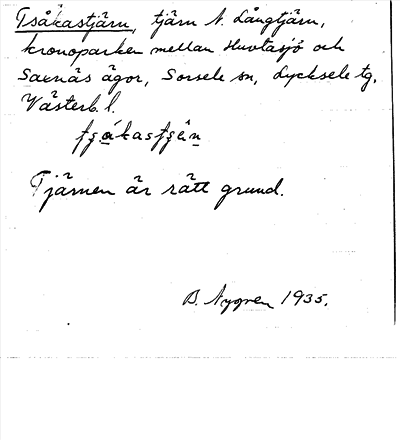 Tsåkastjärn, tjärn N. Långtjärn,
kronoparken mellan Huvtasjö och
Saxnäs ägor, Sorsele sn, Lycksele tg.
Västerb. l.
Tjärnen är rätt grund.
B. Nygren 1935.